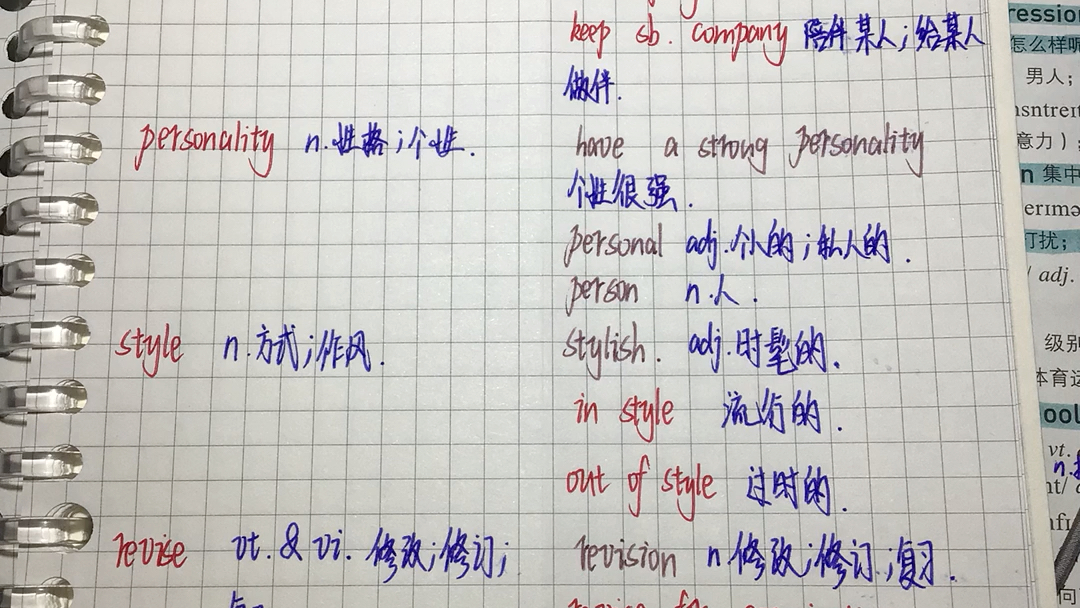 keep sb. company 陪伴某人;给某人
做伴.
personality n.性格;个性.
have a strong personality
个性很强.
personal adj.个人的;私人的.
person n.人.
style n.方式;作风.
stylish. adj.时髦的.
in style 流行的.
out of style 过时的.
revise vt.&vi.修改;修订;
revision n.修改;修订;复习.
ressio
怎么样
男人;
nsntrein
意力);
n 集中
erɪmə
打扰;
/ adj.
级别
体育运
ool
vt.
n.
nt/
nfr
何